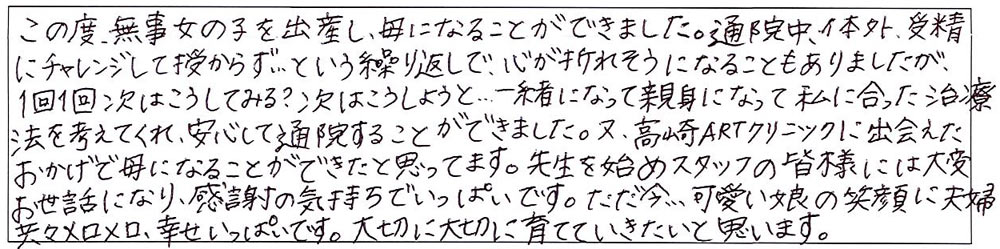 この度、無事女の子を出産し、母になることができました。通院中、体外、受精
にチャレンジして授からず…という繰り返しで、心が折れそうになることもありましたが、
1回1回次はこうしてみる?次はこうしようと…一緒になって親身になって私に合った治療
法を考えてくれ、安心して通院することができました。又、高崎ARTクリニックに出会えた
おかげで母になることができたと思ってます。先生を始めスタッフの皆様には大変
お世話になり、感謝の気持ちでいっぱいです。ただ今…可愛い娘の笑顔に夫婦
共々メロメロ、幸せいっぱいです。大切に大切に育てていきたいと思います。